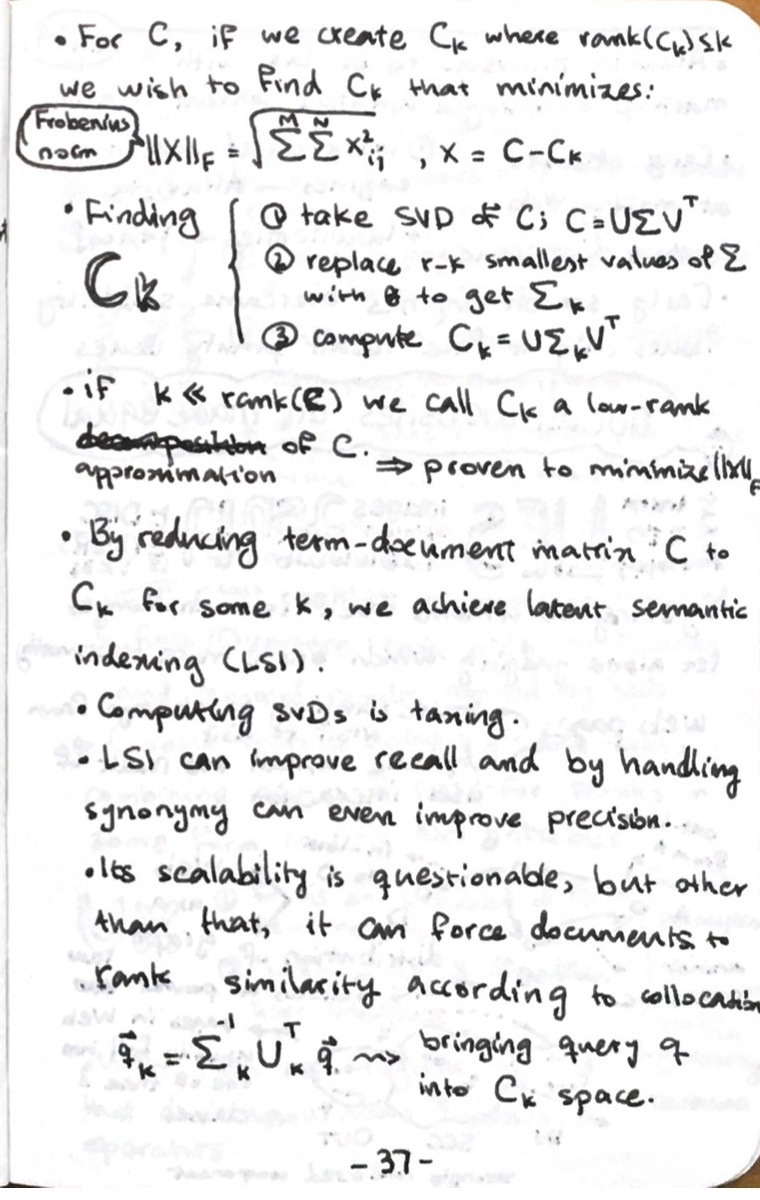 • For C, if we create Cₖ where rank(Cₖ)≤k
we wish to find Cₖ that minimizes:
Frobenius
norm
||X||_F = √(Σ^M Σ^N x²ᵢⱼ) , X = C-Cₖ
• Finding
Cₖ
① take SVD of C; C=UΣVᵀ
② replace r-k smallest values of Σ
with 0 to get Σₖ.
③ compute Cₖ = UΣₖVᵀ
• if k ≪ rank(C) we call Cₖ a low-rank
~~decomposition~~ of C.
approximation ⇒ proven to minimize ||X||_F
• By reducing term-document matrix C to
Cₖ for some k, we achieve latent semantic
indexing (LSI).
• Computing SVDs is taxing.
• LSI can improve recall and by handling
synonymy can even improve precision.
• Its scalability is questionable, but other
than that, it can force documents to
rank similarity according to collocation
q⃗ₖ = Σₖ⁻¹ Uₖᵀ q⃗ ⇝ bringing query q
into Cₖ space.
-37-